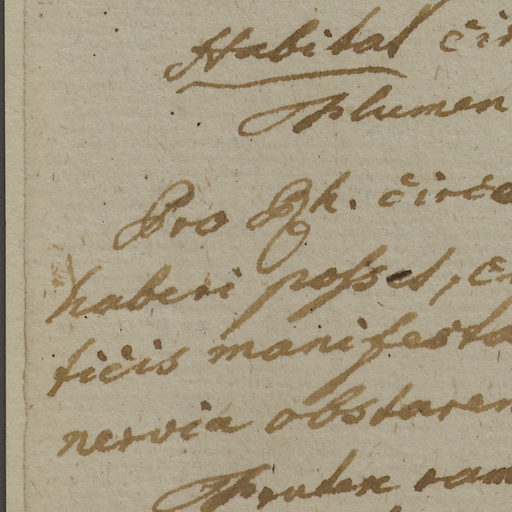 Habitat cir
Flumen
Pro Ph. circe
haberi posset, e
ticis manifesta
nervia obstaren
Frutex ram